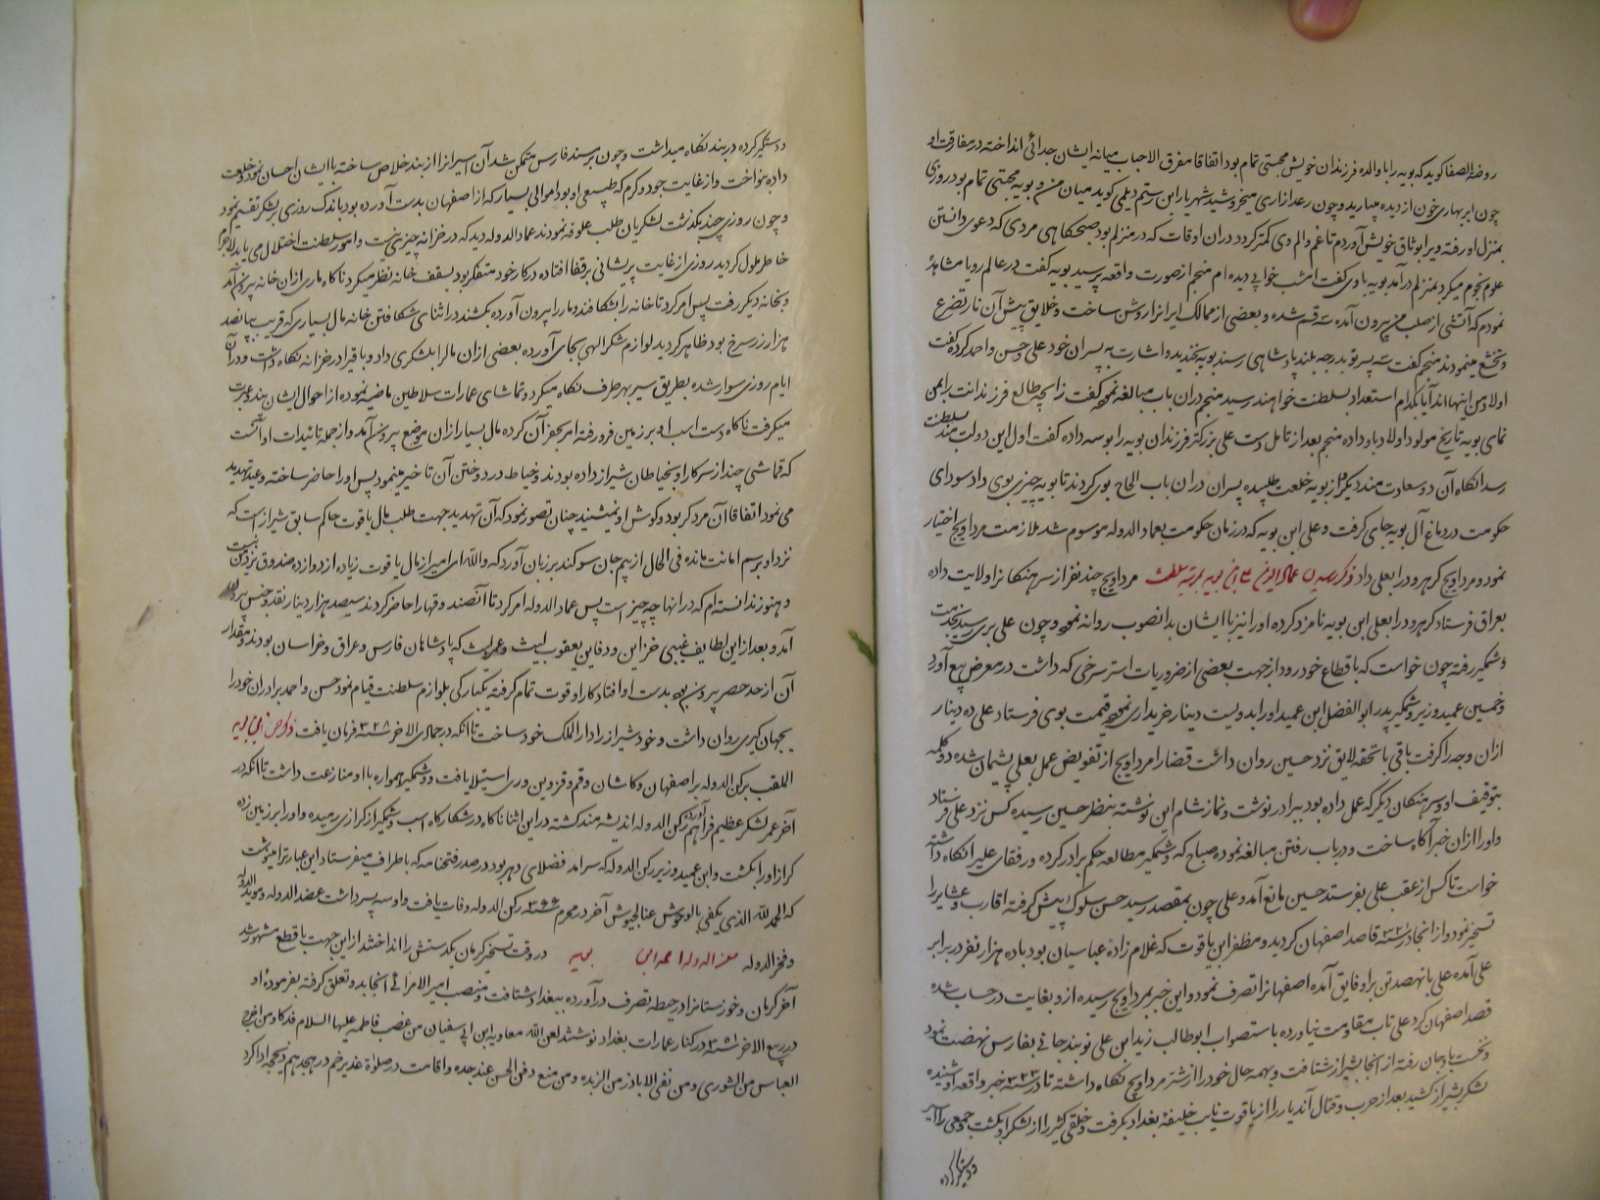 روضة الصفا گوید که بویه را با والده فرزندان خویش محبتی تمام بود اتفاقا مفرق الاحباب میانه ایشان جدائی انداخته در مفارقت او
چون ابر بهاری خون از دیده میبارید و چون رعد از زاری میخروشید شهریار ابن رستم دیلمی گوید میان من و بویه محبتی تمام بود روزی
بمنزل او رفته ویرا بوثاق خویش آوردم تا غم و الم وی کمتر گردد در آن اوقات که در منزلم بود مردی که دعوی دانستن
علوم نجوم میکرد بمنزلم درآمد بویه با وی گفت امشب خوابی دیده ام منجم از صورت واقعه پرسید بویه گفت در عالم رویا مشاهده
نمودم که آتشی از صلب من بیرون آمده سه قسم شده و بعضی از ممالک ایرانرا روشن ساخت و خلایق پیش آن نار تضرع
و تخشع مینمودند منجم گفت سه پسر تو بدرجه بلند پادشاهی رسند بویه بخندید و اشارت به پسران خود علی و حسن و احمد کرده گفت
اولاد من اینها اند آیا بکدام استعداد بسلطنت خواهند رسید منجم در آن باب مبالغه نموده گفت زایچه طالع فرزندانت را بمن
نمای بویه تاریخ مولود اولاد باو داده منجم بعد از تامل دست علی بزرگتر فرزندان بویه را بوسه داده گفت اول این دولت مند بسلطنت
رسد آنگاه آن دو سعادت مند دیگر از بویه خلعت طلبیده پسران در آن باب الحاح بوی کردند تا بویه چیزی بوی داد سودای
حکومت در دماغ آل بویه جای گرفت و علی ابن بویه که در زمان حکومت بعماد الدوله موسوم شد ملازمت مرداویج اختیار
نمود و مرداویج کرهرود را بعلی داد ذکر رسیدن عماد الدوله علی ابن بویه بمرتبه سلطنت مرداویج چند نفر از سرهنگانرا ولایت داده
بعراق فرستاد کرهرود را بعلی ابن بویه نامزد کرده او را نیز با ایشان بدانصوب روانه نموده و چون علی بری رسید بخدمت
وشمگیر رفته چون خواست که باقطاع خود رود از جهت بعضی از ضروریات استر سرخی که داشت در معرض بیع آورد
و حسین عمید وزیر وشمگیر پدر ابو الفضل ابن عمید او را بدویست دینار خریداری نموده قیمت بوی فرستاد علی ده دینار
ازان وجه را گرفت باقی با تحفه لایق نزد حسین روان داشت قضا را مرداویج از تفویض عمل بعلی پشیمان شده دو کلمه
بتوقیف او و سرهنگان دیگر که عمل داده بود ببرادر نوشت و نماز شام این نوشته بنظر حسین رسیده کس نزد علی فرستاد
و او را ازان خبر آگاه ساخت و در باب رفتن مبالغه نموده صباح که وشمگیر مطالعه حکم برادر کرده و رفقای علی را نگاه داشته
خواست تا کس از عقب علی بفرستد حسین مانع آمد و علی چون بمقصد رسید حسن سلوک پیش گرفته اقارب و عشایر را
تسخیر نمود و از آنجا در سنه ۳۲۱ قاصد اصفهان گردید و مظفر ابن یاقوت که غلام زاده عباسیان بود با ده هزار نفر در برابر
علی آمده علی با نهصد تن برو فایق آمده اصفهانرا تصرف نمود و این خبر بمرداویج رسیده ازو بغایت در حساب شده
قصد اصفهان کرد علی تاب مقاومت نیاورده باستصواب ابو طالب زید ابن علی نوبندجانی بفارس نهضت نمود
و نخست باوجان رفته از آنجا بشیراز شتافت و بهمه حال خود را از شر مرداویج نگاه داشته تا در سنه ۳۲۳ خبر واقعه او شنیده
لشکر بشیراز کشید بعد از حرب و قتال آندیار را از یاقوت نایب خلیفه بغداد بگرفت و خلقی کثیر را از لشکر او بکشت و جمعی را اسیر
و دستگیر کرده
و دستگیر کرده در بند نگاه میداشت و چون بر مسند فارس متمکن شد آن اسیرانرا از بند خلاص ساخته با ایشان احسان نمود خلعت
داده بنواخت و از غایت جود و کرم که طبیعی او بود اموالی بسیار که از اصفهان بدست آورده بود باندک روزی بر لشکر تقسیم نمود
و چون روزی چند بگذشت لشکریان طلب علوفه نمودند عماد الدوله دید که در خزانه چیزی نیست و امور سلطنت اختلال می یابد لاجرم
خاطر ملول گردید روزی از غایت پریشانی بر قفا افتاده در کار خود متفکر بود بسقف خانه نظر میکرد ناگاه ماری ازان خانه بیرون آمد
و بخانه دیگر رفت پس امر کرد تا خانه را بشکافند و مار را بیرون آورده بکشند در اثنای شکافتن خانه مال بسیاری که قریب بپانصد
هزار زر سرخ بود ظاهر گردید لوازم شکر الهی بجای آورده بعضی ازان مال را بلشکری داد و باقی را در خزانه نگاه داشت و در آن
ایام روزی سوار شده بطریق سیر بهر طرف نگاه میکرد و تماشای عمارات سلاطین ماضیه نموده از احوال ایشان پند و عبرت
میگرفت ناگاه دست اسب او بر زمین فرو رفته امر بحفر آن کرده مال بسیار ازان موضع بیرون آمد و از جمله تائیدات او آنست
که قماشی چند از سرکار او بخیاطان شیراز داده بودند و خیاط در دوختن آن تاخیر مینمود پس او را حاضر ساخته وعید تهدید
می نمود اتفاقا آن مرد کر بود و گوش او نمیشنید چنان تصور نمود که آن تهدید جهت طلب مال یاقوت حاکم سابق شیراز است که
نزد او برسم امانت مانده فی الحال از بیم جان سوگند بر زبان آورد که والله ای امیر از مال یاقوت زیاده از دوازده صندوق نزد من نیست
و هنوز ندانسته ام که در آنها چه چیز است پس عماد الدوله امر کرد تا آنصندوقها را حاضر کردند سیصد هزار دینار نقد و جنس بیرون
آمد و بعد از این لطایف غیبی خزاین و دفاین یعقوب لیث و عمرلیث که پادشاهان فارس و عراق و خراسان بودند و مقدار
آن از حد حصر بیرون بود بدست او افتاد کار او قوت تمام گرفته یکبارگی بلوازم سلطنت قیام نمود حسن و احمد برادران خود را
بجهان گیری روان داشت و خود شیراز را دار الملک خود ساخت تا آنکه در جمادی الاخر سنه ۳۳۸ فرمان یافت ذکر حسن ابن بویه
الملقب برکن الدوله بر اصفهان و کاشان و قم و قزوین و ری استیلا یافت و وشمگیر همواره با او منازعت داشت تا آنکه در
آخر عمر لشکر عظیم فراهم آورده رکن الدوله اندیشه مند گشته در این اثنا ناگاه در شکارگاه اسب وشمگیر از گرازی رمیده و او را بر زمین زده
گراز او را بکشت و ابن عمید وزیر رکن الدوله که سرآمد فضلای دهر بود در صدر فتحنامه که باطراف میفرستاد این عبارترا مینوشت
که الحمد لله الذی یکفی بالوحوش عنا الجیوش آخر در محرم سنه ۳۶۶ رکن الدوله وفات یافت و او سه پسر داشت عضد الدوله و موید الدوله
و فخر الدوله معز الدوله احمد ابن بویه در وقت تسخیر کرمان یکدستش را انداختند از این جهت باقطع مشهور شد
آخر کرمان و خوزستانرا در حیطه تصرف درآورده ببغداد شتافت و منصب امیر الامرائی آنجا بدو تعلق گرفته بفرموده او
در ربیع الاخر سنه ۳۵۱ در کنار عمارات بغداد نوشتند لعن الله معاویه ابن ابی سفیان من غصب فاطمه علیها السلام فدکا و من اخرج
العباس من الشوری و من نفی الاباذر من الزبده و من منع دفن الحسن عند جده و اقامت در صلوة غدیر خم در هجدهم ذیحجه ادا کرد